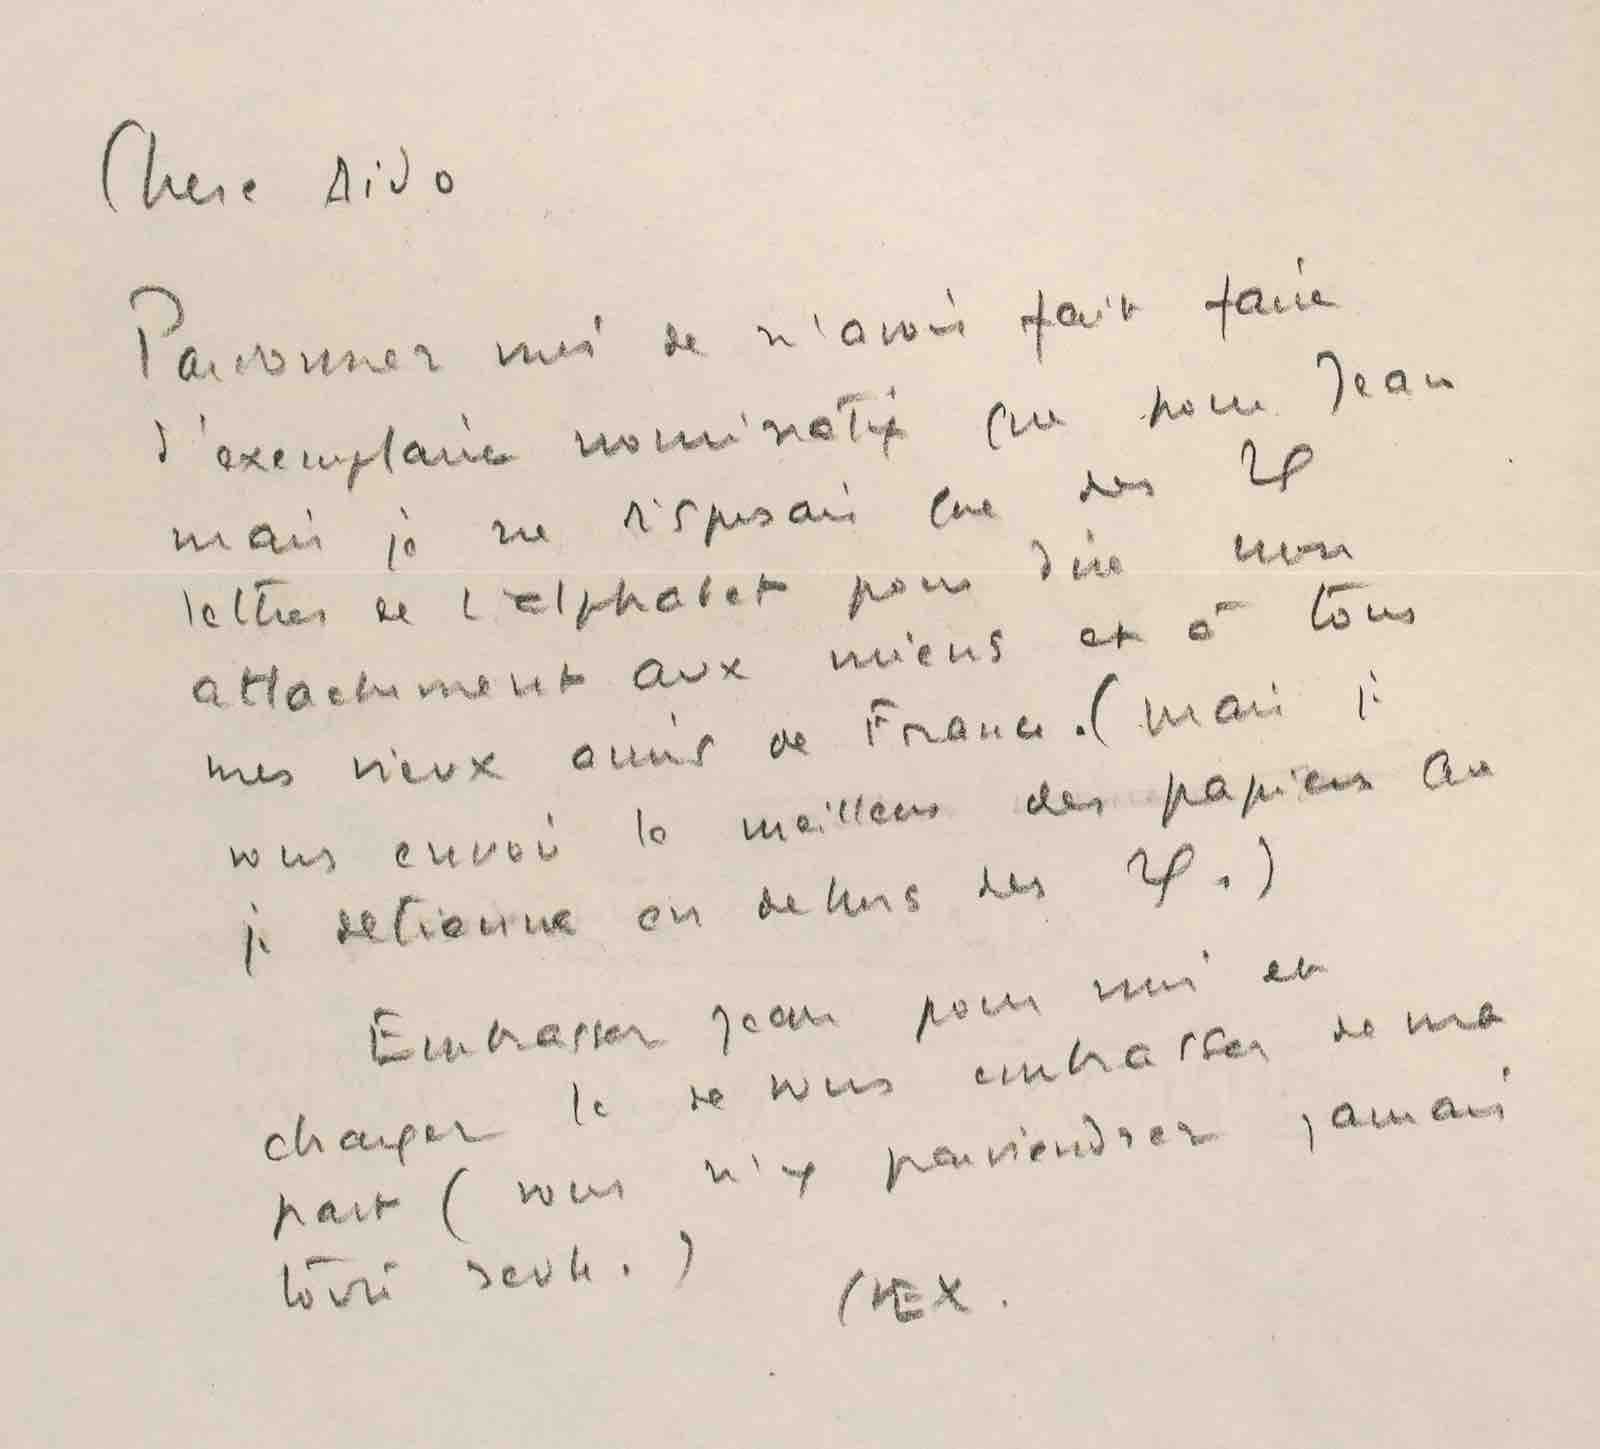 Chere Dido
Pardonnez moi de n'avoir fait faire
d'exemplaire nominatif que pour Jean
mais je ne disposais que des 24
lettres de l'alphabet pour dire mon
attachement aux miens et à tous
mes vieux amis de France. (mais je
vous envoi le meilleur des papiers que
je detienne en dehors des 24.)
Embrassez Jean pour moi et
chargez le de vous embrasser de ma
part (vous n'y parviendrez jamais
toute seule.)